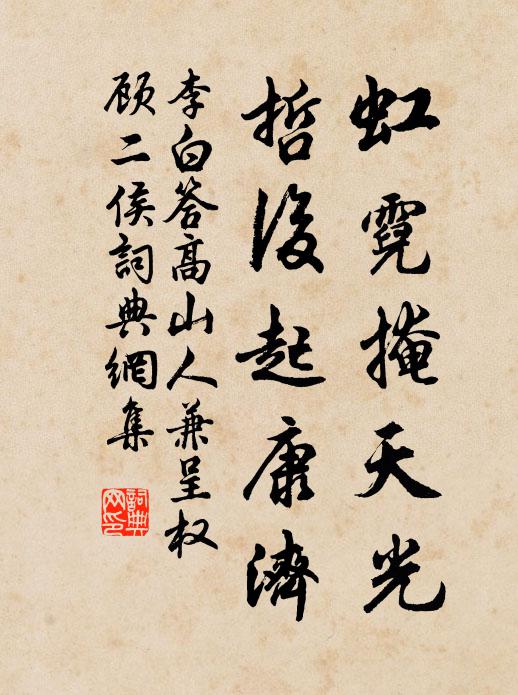 虹霓掩天光
哲後起康濟
李白答高山人兼呈权
顾二侯詞典網集
詞典網印